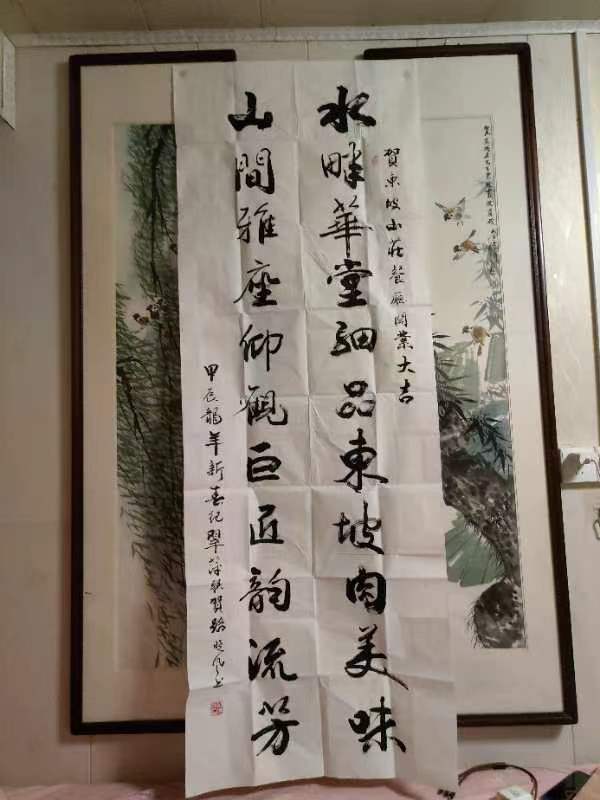 賀東坡山莊餐廳開業大吉
水畔華堂細品東坡肉美味
山間雅座仰觀巨匠韵流芳
甲辰龍年新春紀翠萍